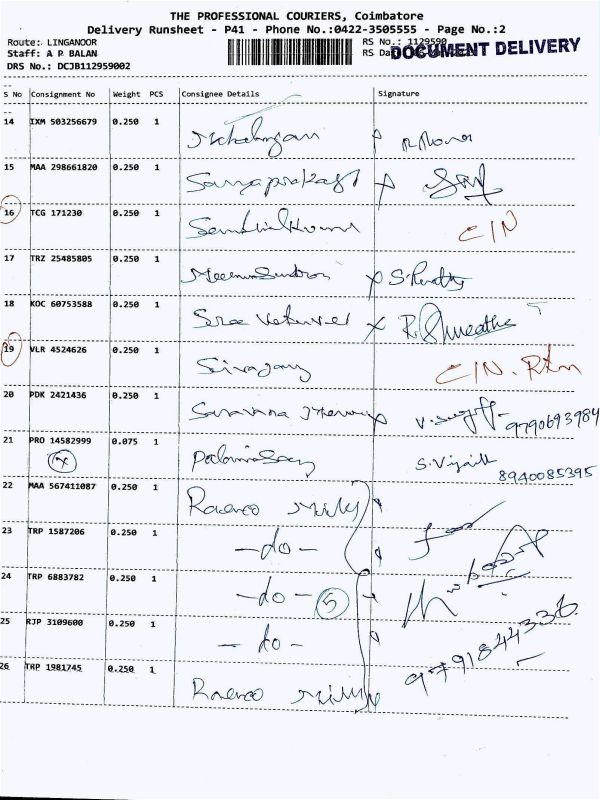 THE PROFESSIONAL COURIERS, Coimbatore
Delivery Runsheet - P41 - Phone No.:0422-3505555 - Page No.:2
Route: LINGANOOR
RS No.: 1129590
Staff: A P BALAN
RS Da
DOCUMENT DELIVERY
DRS No.: DCJB112959002
S No Consignment No Weight PCS Consignee Details Signature
14 IXM 503256679 0.250 1
15 MAA 298661820 0.250 1 Suryaprakash
16 TCG 171230 0.250 1 Senthilkumar C/N
17 TRZ 25485805 0.250 1 Meenasundron
18 KOC 60753588 0.250 1
19 VLR 4524626 0.250 1 Sivagany C/N. Rtn
20 PDK 2421436 0.250 1 Saravana 9790693984
21 PRO 14582999 0.075 1 S. Vijaik
8940085395
22 MAA 567411087 0.250 1 Roenco Mills
23 TRP 1587206 0.250 1 - do -
24 TRP 6883782 0.250 1 - do - 5
25 RJP 3109600 0.250 1 - do -
9791844336
26 TRP 1981745 0.250 1 Roenco Mills